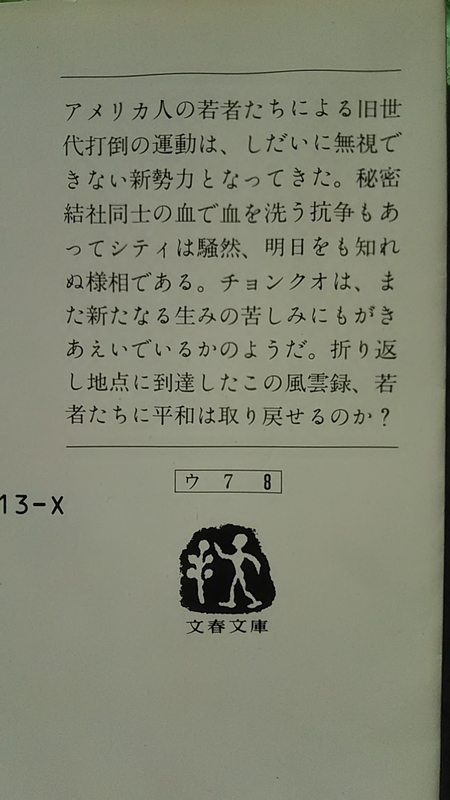 アメリカ人の若者たちによる旧世
代打倒の運動は、しだいに無視で
きない新勢力となってきた。秘密
結社同士の血で血を洗う抗争もあ
ってシティは騒然、明日をも知れ
ぬ様相である。チョンクオは、ま
た新たなる生みの苦しみにもがき
あえいでいるかのようだ。折り返
し地点に到達したこの風雲録、若
者たちに平和は取り戻せるのか？
ウ 7 8
13-X
文春文庫